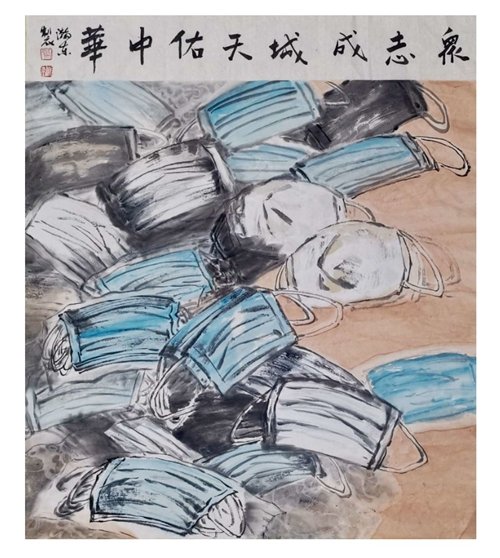 衆志成城天佑中華